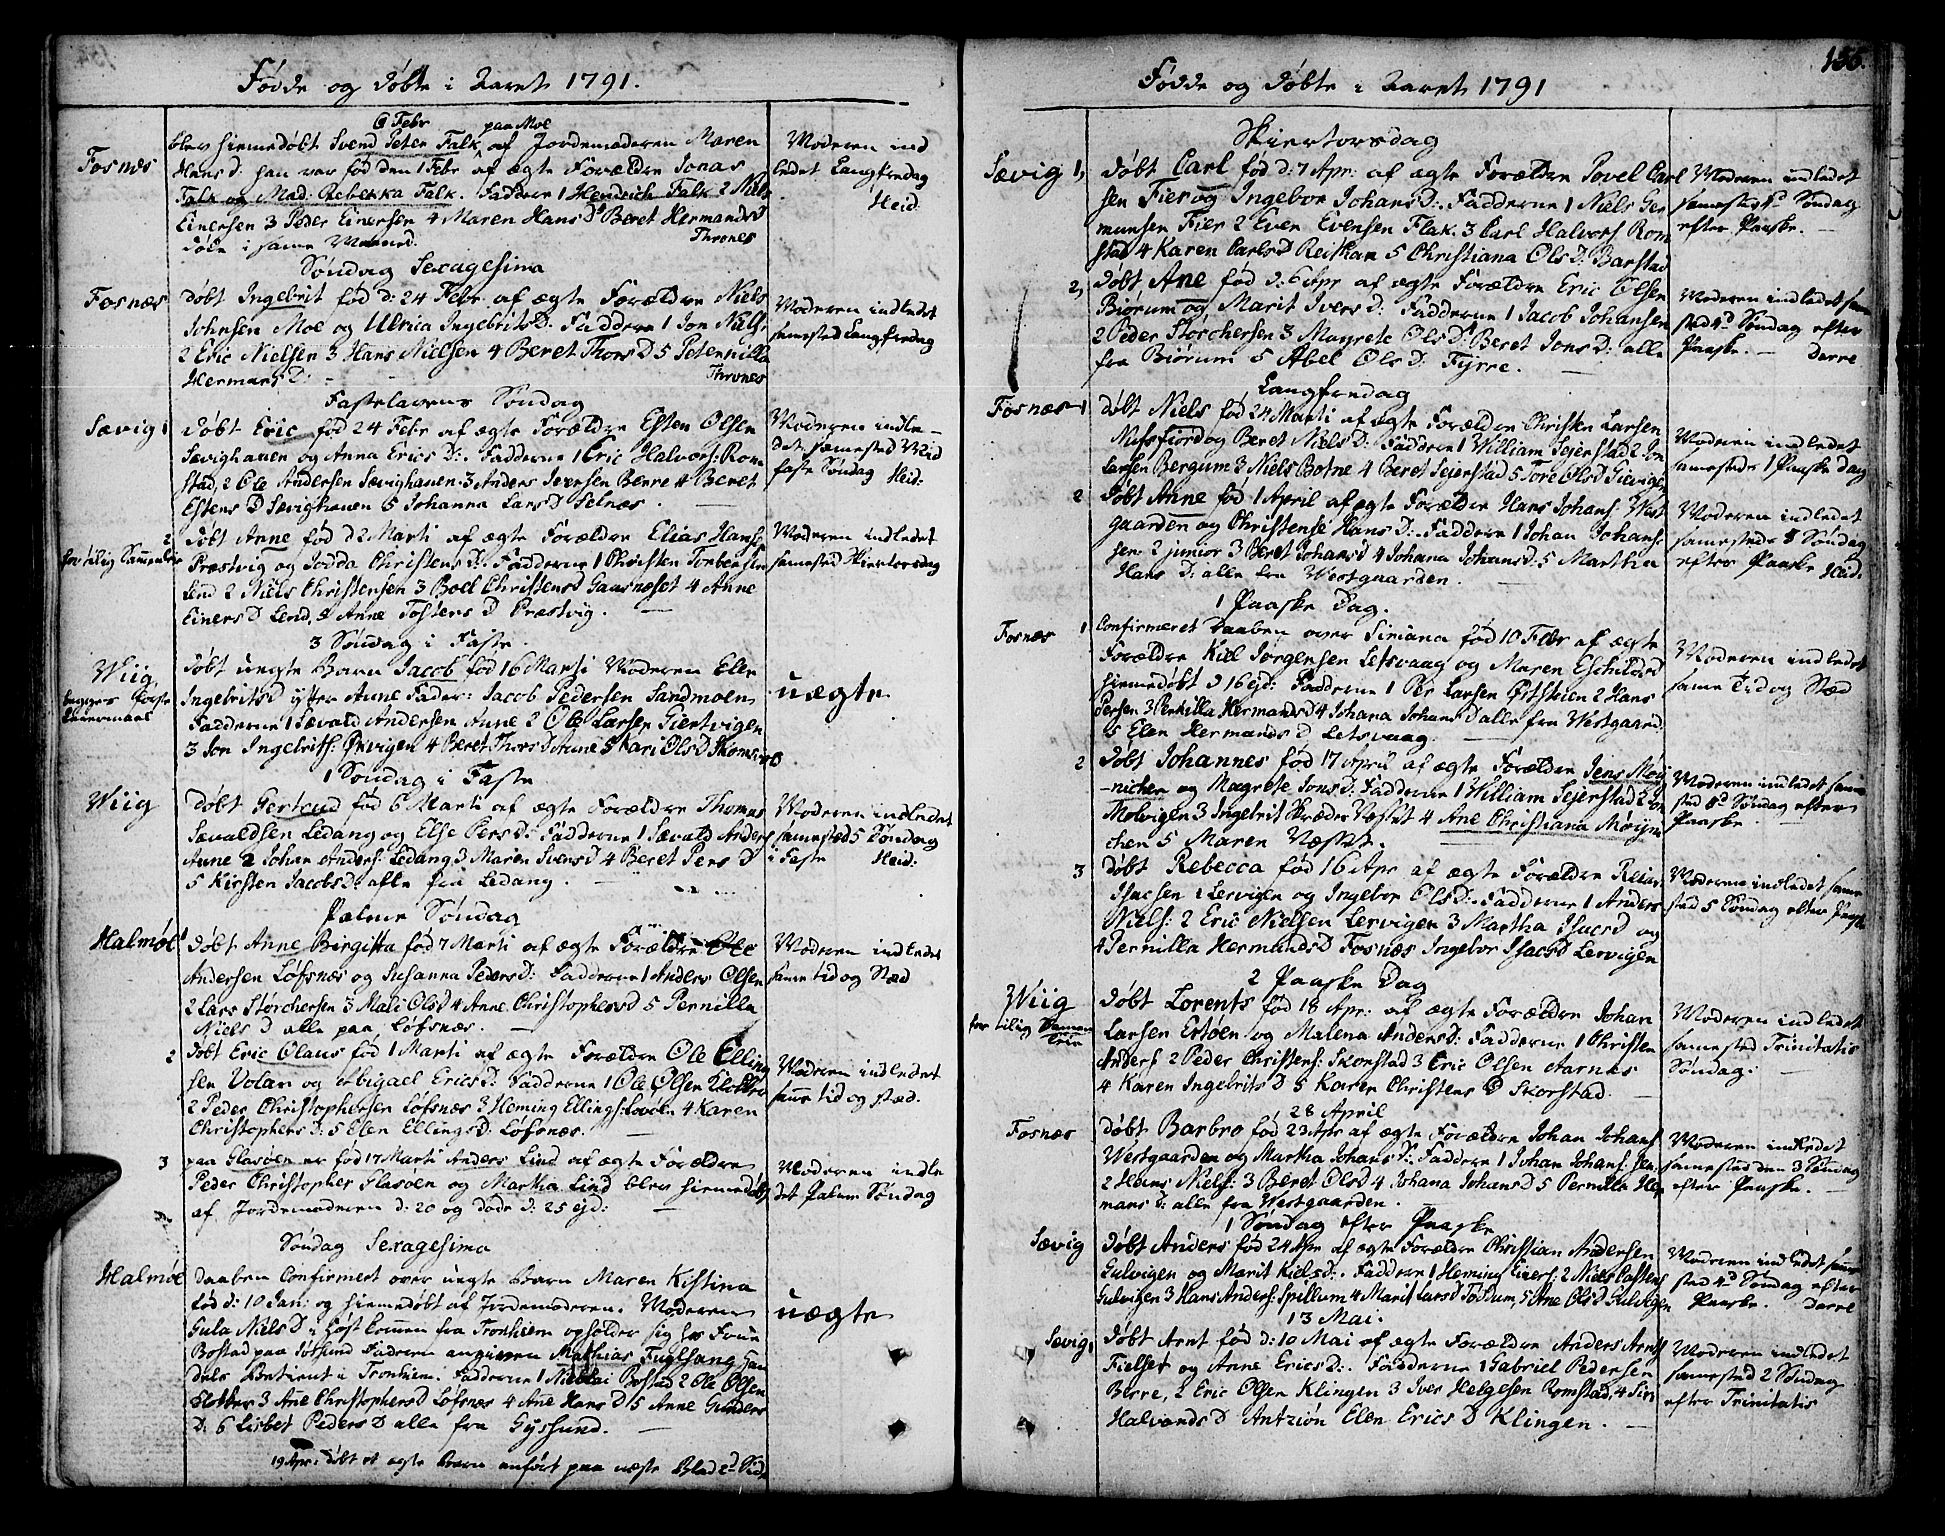 Födde og döbte i Aaret 1791.
Fosnæs
6 Febr
paa Moe
blev hiemedöbt Svend Peter Falk af Jordemoderen Maren
Hans D. han var föd den 1 Febr af ægte Forældre Jonas
Falk og Mad. Rebekka Falk. Fadderne 1 Hendrich Falk 2 Niels
Einersen 3 Peder Einersen 4 Maren Hans D 5 Beret Hermands D
Thrones
döde i same Maaned.
Moderen ind
ledet Langfredag
Heid:
Söndag Sexagesima
Fosnæs
Döbt Ingebrit föd d: 24 Febr af ægte Forældre Niels
Johnsen Moe og Ulrica Ingebrits D: Fadderne 1 Jon Niels:
2 Eric Nielsen 3 Hans Nielsen 4 Beret Thors D 5 Peternilla
Hermans D:
Thrones
Moderen indledet
samested Langfredag
Fastelavens Söndag
Sævig 1
Döbt Eric föd 24 Febr af ægte Forældre Esten Olsen
Sævighauen og Anna Erics D:. Fadderne 1 Eric Halvors: Rom
stad, 2 Ole Andersen Sævighauen 3 Anders Iversen Berre 4 Beret
Estens D Sævighauen 5 Johanna Lars D Selnæs.
Moderen indle
det samested Mid
faste Söndag Heid:
2
for tilig Sammenleie
Döbt Anne föd d 2 Marti af ægte Forældre Elias Hans:
Præstvig og Jodda Christens D: Fadderne 1 Christen Torbersen
Lend 2 Niels Christensen 3 Boel Christens D Gaasnæset 4 Anne
Einers D Lend, 5 Anne Tostens D Præstvig.
Moderen indledet
samested Skiertorsdag
3 Söndag i Faste.
Wiig
begges förste
Leiermaal
Döbt uægte Barn Jacob föd 16 Marti Moderen Elen
Ingebrits D ytter Anne Fader: Jacob Pedersen Sandmoen
Fadderne 1 Sævald Andersen Anne 2 Ole Larsen Gientvigen
3 Jon Ingebrits: Öevigen 4 Beret Thors D Aune 5 Kari Ols D Skomsvold
uægte
1 Söndag i Faste
Wiig
Döbt Gertrud föd 6 Marti af ægte Forældre Thomas
Sævaldsen Ledang og Else Pers D: Fadderne 1 Sævald Anders:
Aune 2 Johan Anders: Ledang 3 Maren Svens D 4 Beret Pers D
5 Kirsten Jacobs D: alle fra Ledang.
Moderen indledet
samested 5 Söndag
i Faste Heid:
Palme Söndag
Halmöe 1
Döbt Anne Birgitta föd 7 Marti af ægte Forældre Ole
Andersen Löfsnæs og Susanna Peders D: Fadderne 1 Anders Olsen
2 Lars Störchersen 3 Mali Ols D 4 Anne Christophers D 5 Pernilla
Niels D alle paa Löfsnæs.
Moderen indledet
same tid og Stæd
2
Döbt Eric Olaus föd 1 Marti af ægte Forældre Ole Elling
sen Volan og Abigael Erics D: Fadderne 1 Ole Olsen Klotter
2 Peder Christophersen Löfsnæs 3 Heming Ellings: Lovöen 4 Karen
Christophers D: 5 Elen Ellings D: Löfsnæs.
Moderen indledet
same tid og stæd.
3
paa Glasöen er föd 17 Marti Anders Lind af ægte Forældre
Peder Christopher Glasöen og Martha Lind blev hiemedöbt
af Jordemoderen d: 20 og döde d: 25 ejd:
Moderen indle
det Palme Söndag
Söndag Sexagesima
Halmöe
Daaben Confirmert over uægte Barn Maren Kistina
föd d: 10 Jan: og hiemedöbt af Jordemoderen. Moderen
Gula Niels D i Höst kommen fra Tronhiem opholder sig hos Frue
Bostad paa Sörsund Faderen angiven Mathias Fuglsang Han
dels Betient i Tronhiem. Fadderne 1 Nicolai Bostad 2 Ole Olsen
Klotter 3 Ane Christophers D Löfsnæs 4 Ane Hans D 5 Anne Gunders
D: 6 Lisbet Peders D alle fra Gyssund.
uægte
19 Apr: Döbt et ægte Barn anfört paa næste Blad 2d Side
155.
Födde og Döbte i Aaret 1791
Skiertorsdag
Sævig 1,
Döbt Carl föd d. 7 Apr: af ægte Forældre Povel Carl
sen Fier og Ingebor Johans D:. Fadderne 1 Niels Ger
munsen Fier 2 Even Evensen Flak. 3 Carl Halvors Rom
stad 4 Karen Carls D Reithan 5 Christiana Ols D: Barstad
Moderen indledet
samested 4d Söndag
efter Paaske.
2,
Döbt Ane föd d: 6 Apr af ægte Forældre Eric Olsen
Biörum og Marit Ivers D: Fadderne 1 Jacob Johansen
2 Peder Störchersen 3 Magrete Ols D: 4 Beret Jons D: alle
fra Biörum 5 Abel Ols D: Fyrre.
Moderen indledet same
sted 4d Söndag efter
Paaske. Derre
Langfredag
Fosnæs 1
Döbt Niels föd 24 Marti af ægte Forældre Christen Larsen
Nufsfiord og Beret Niels D: Fadderne 1 William Seierstad 2 Jon
Larsen Bergum 3 Niels Botne 4 Beret Seierstad 5 Tore Ols D Sievigen
Moderen indledet
samesteds 1 Paaske Dag
2
Döbt Anne föd 1 April af ægte Forældre Hans Johans: West
gaarden og Christense Hans D: Fadderne 1 Johan Johans:
sen 2 junior 3 Beret Johans D 4 Johana Johans D: 5 Martha
Hans D: alle fra Westgaarden.
Moderen indledet
samesteds 5 Söndag
efter Paaske Heid:
1 Paaske Dag.
Fosnæs 1
Confirmeret Daaben over Siriana föd 10 Febr af ægte
Forældre Kiel Jörgensen Letsvaag og Maren Eschilds D
hiemedöbt d 16 ejd: Fadderne 1 Per Larsen Östskien 2 Hans
Persen 3 Pernilla Hermands D 4 Johana Johans D alle fra Westgaard
5 Elen Hermands D Letsvaag.
Moderen indledet
same Tid og Stæd
2
Döbt Johannes föd 17 April af ægte Forældre Jens Moy
nichen og Magrete Jons D: Fadderne 1 William Seierstad 2 Jon
Molvigen 3 Ingebrit Skræder Næsset 4 Ane Christiana Möyni
chen 5 Maren Næsset.
Moderen indledet same
sted 5d Söndag efter
Paaske.
3
Döbt Rebecca föd 16 Apr af ægte Forældre Reiar
Isacsen i Lervigen og Ingebor Ols D: Fadderne 1 Anders
Niels: 2 Eric Nielsen Lervigen 3 Martha Isacs D og
4 Pernilla Hermands D Fosnæs Ingebor Isacs D Lervigen
Moderen indledet same
sted 5 Söndag efter Paaske
2 Paaske Dag
Wiig
for tilig Samen
leie
Döbt Lorents föd 18 Apr: af ægte Forældre Johan
Larsen Ertöen og Malena Anders D: Fadderne 1 Christen
Anders: 2 Peder Christens: Skorstad 3 Eric Olsen Aarnæs
4 Karen Ingebrits D 5 Karen Christens D Skorstad.
Moderen indledet
samested Trinitatis
Söndag:
28 April
Fosnæs
Döbt Barbro föd 23 Apr af ægte Forældre Johan Johans:
Westgaarden og Martha Johans D: Fadderne 1 Johan Johans: sen.
2 Hans Niels: 3 Beret Ols D 4 Johana Johans D 5 Pernilla Her
mans D: alle fra Westgaarden.
Moderen indledet
samested den 3 Söndag
efter Paaske.
1 Söndag efter Paaske
Sævig
Döbt Anders föd 24 Apr af ægte Forældre Christian Andersen
Gulvigen og Marit Kiels D:. Fadderne 1 Heming Einers: 2 Niels Carstens:
Gulvigen 3 Hans Anders: Spillum 4 Marit Lars D Töddum, 5 Ane Ols D Gulvigen
Moderen indledet same
sted 4d Söndag efter
Paaske. Derre
13 Mai.
Sævig 1
Döbt Arnt föd d: 10 Mai af ægte Forældre Anders Arnts:
Fielset og Anne Erics D:. Fadderne 1 Gabriel Pedersen
Berre, 2 Eric Olsen Klingen 3 Iver Helgesen Romstad, 4 Siri
Halvands D Antziön Elen Erics D Klingen.
Moderen indledet
samested 2 Söndag
efter Trinitatis